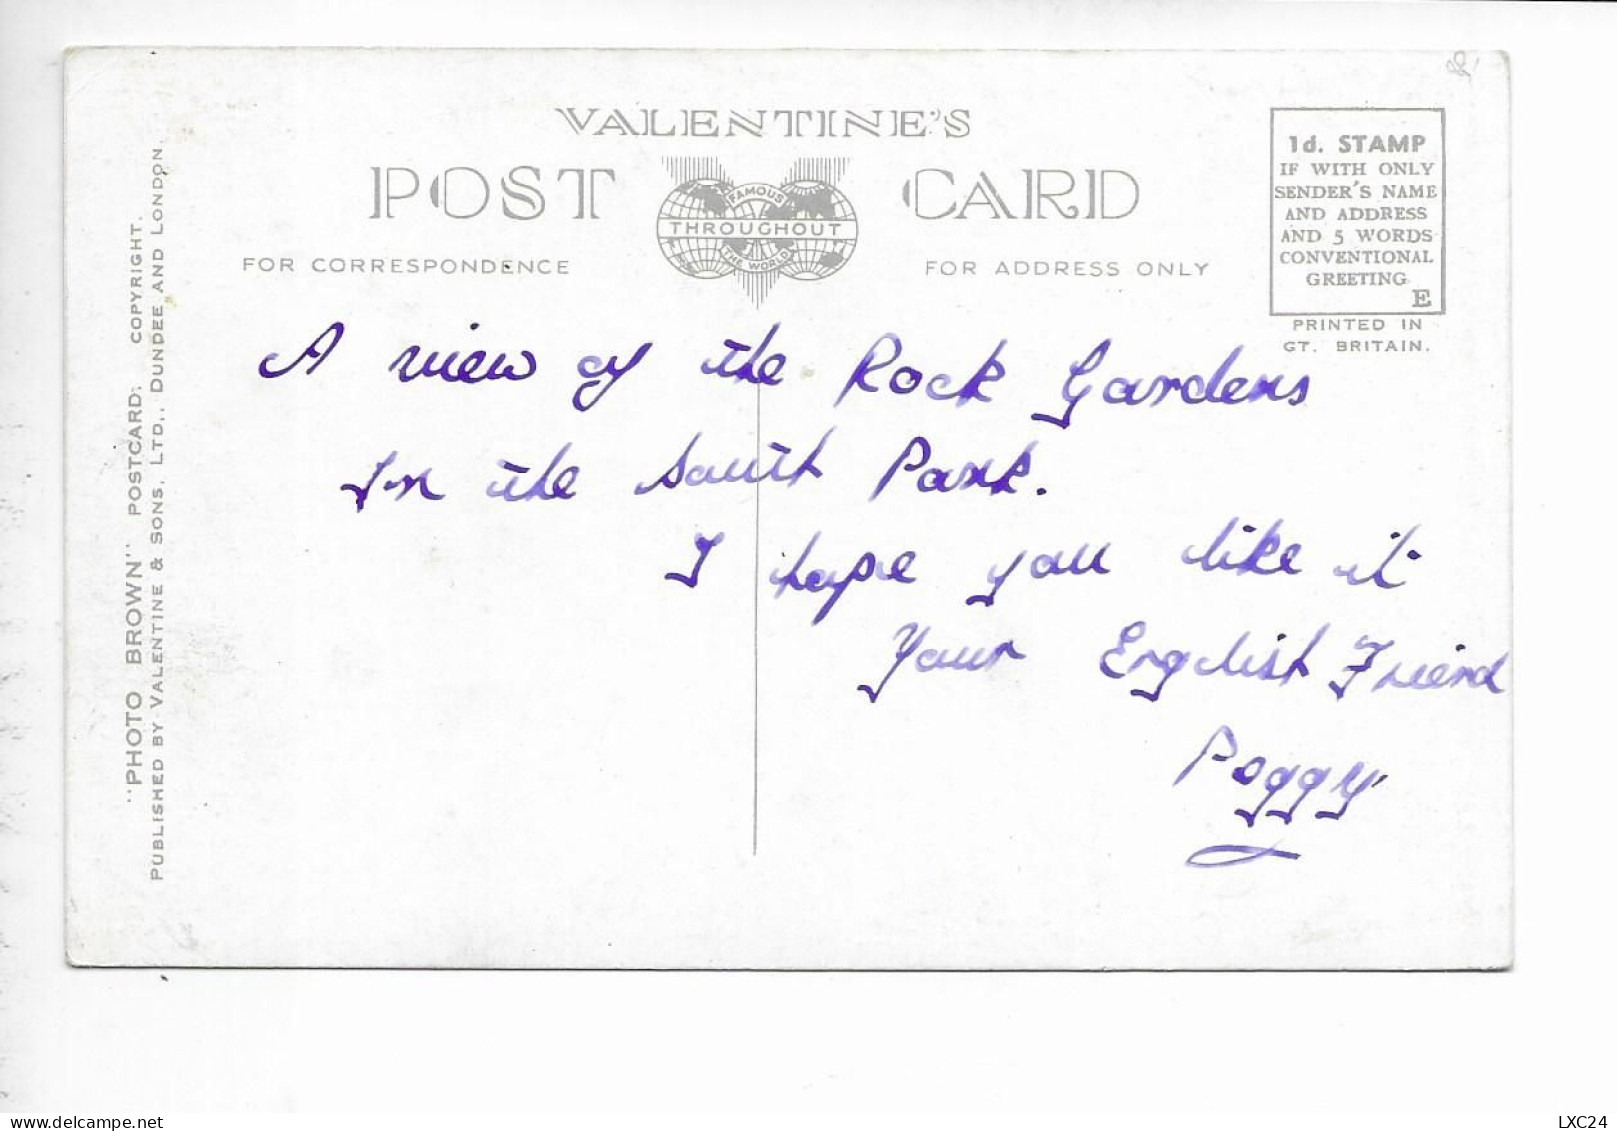 VALENTINE'S
POST CARD
FAMOUS
THROUGHOUT
THE WORLD
FOR CORRESPONDENCE
FOR ADDRESS ONLY
1d. STAMP
IF WITH ONLY
SENDER'S NAME
AND ADDRESS
AND 5 WORDS
CONVENTIONAL
GREETING
E
PRINTED IN
GT. BRITAIN.
"PHOTO BROWN" POSTCARD. COPYRIGHT.
PUBLISHED BY VALENTINE & SONS, LTD., DUNDEE AND LONDON.
A view of the Rock Gardens
In the South Park.
I hope you like it
Your English Friend
Peggy
LXC24